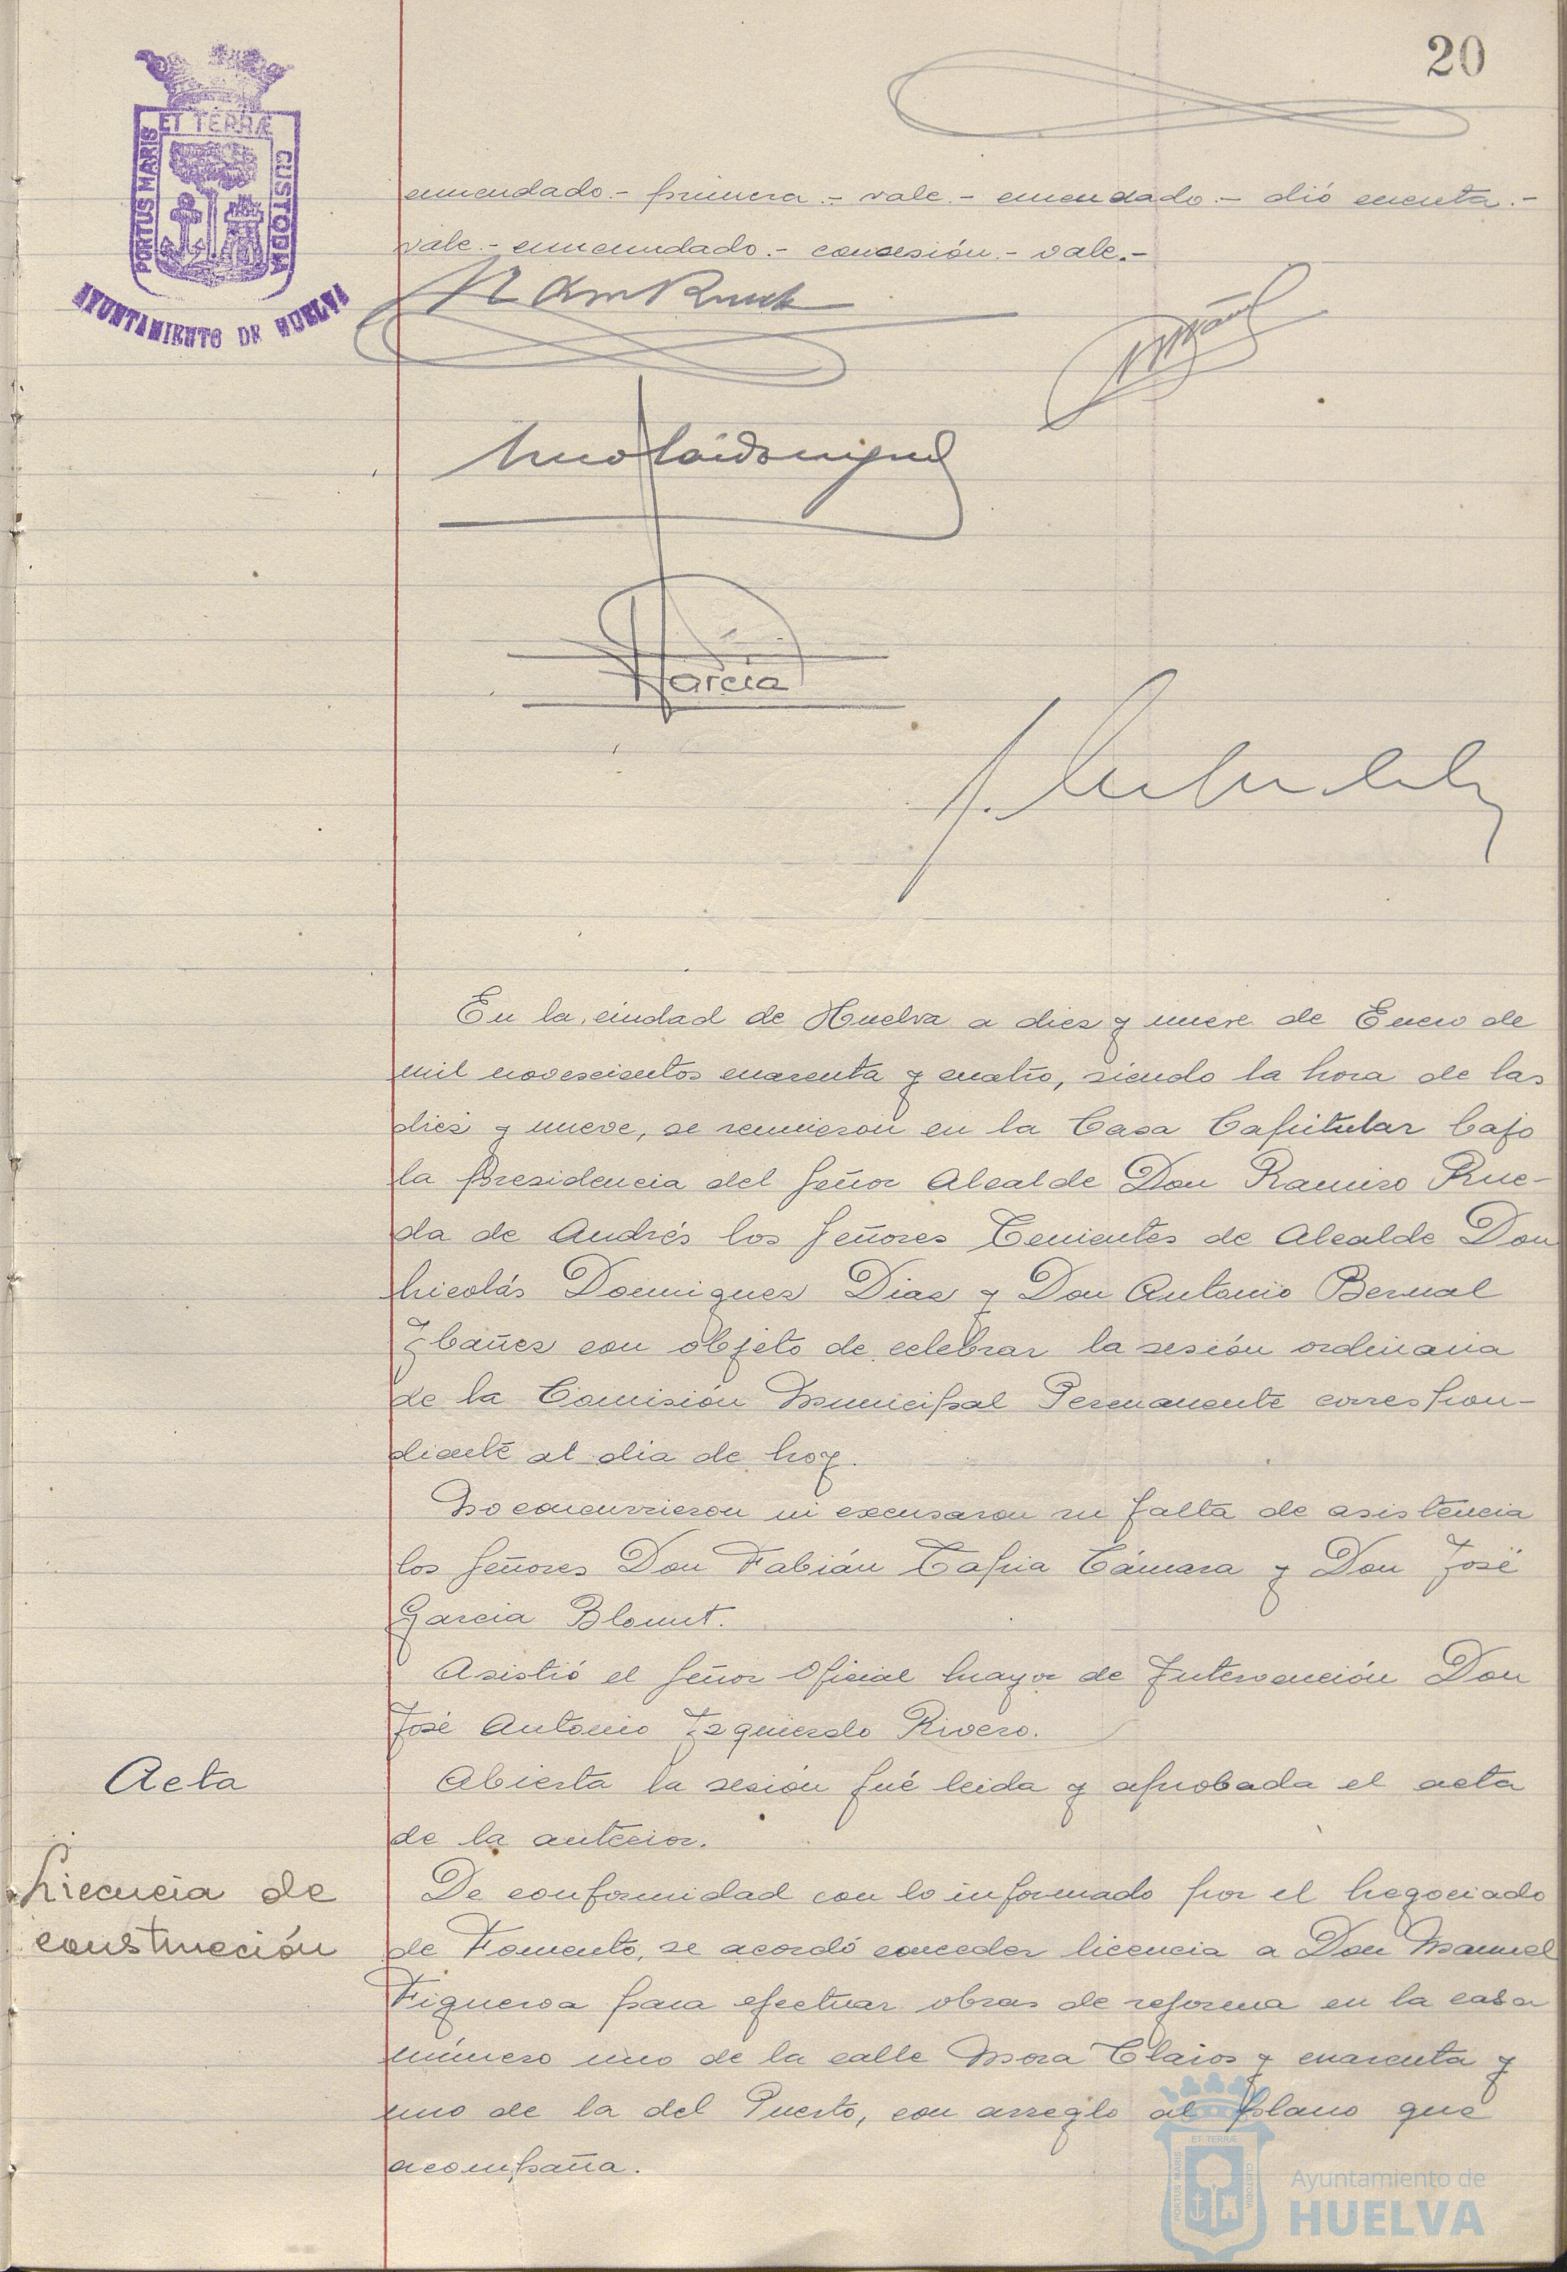 20
ET TERRÆ
PORTUS MARIS
CUSTODIA
AYUNTAMIENTO DE HUELVA
enmendado.- primera.- vale.- enmendado.- dió cuenta.-
vale.- enmendado.- concesión.- vale.-
García
En la ciudad de Huelva a diez y nueve de Enero de
mil novescientos cuarenta y cuatro, siendo la hora de las
diez y nueve, se reunieron en la Casa Capitular bajo
la presidencia del Señor Alcalde Don Ramiro Rue-
da de Andrés los Señores Tenientes de Alcalde Don
Nicolás Dominguez Diaz y Don Antonio Bernal
Ybañez con objeto de celebrar la sesión ordinaria
de la Comisión Municipal Permanente correspon-
diente al dia de hoy.
No concurrieron ni excusaron su falta de asistencia
los Señores Don Fabián Tapia Cámara y Don José
Garcia Blount.
Asistió el Señor Oficial Mayor de Intervención Don
José Antonio Izquierdo Rivero.
Acta
Abierta la sesión fué leida y aprobada el acta
de la anterior.
Licencia de
construcción
De conformidad con lo informado por el Negociado
de Fomento, se acordó conceder licencia a Don Manuel
Figueroa para efectuar obras de reforma en la casa
número uno de la calle Mora Claros y cuarenta y
uno de la del Puerto, con arreglo al plano que
acompaña.
ET TERRÆ
PORTUS MARIS
CUSTODIA
Ayuntamiento de
HUELVA